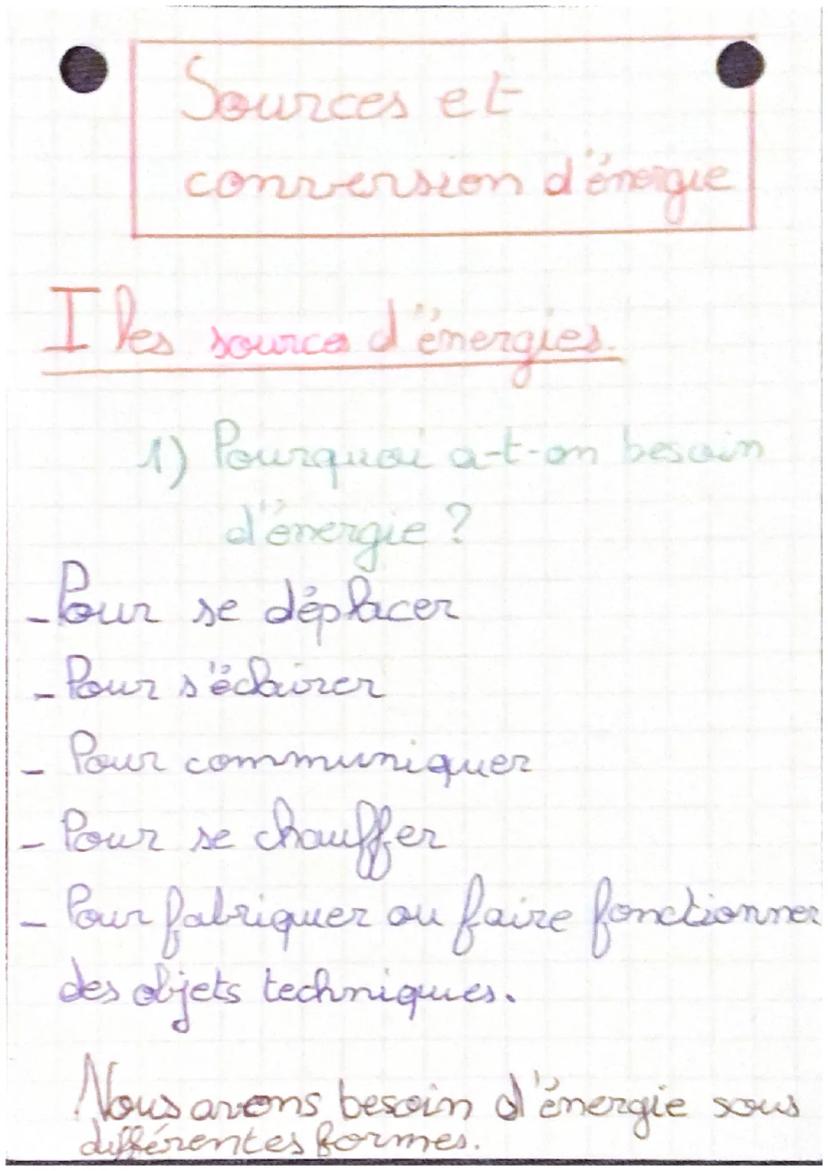 Sources et
conversion d'énergie
I Les sources d'énergies.
1) Pourquoi a-t-on besoin
d'énergie ?
- Pour se déplacer
- Pour s'éclairer
- Pour communiquer
- Pour se chauffer
- Pour fabriquer ou faire fonctionner
des objets techniques.
Nous avons besoin d'énergie sous
différentes formes.